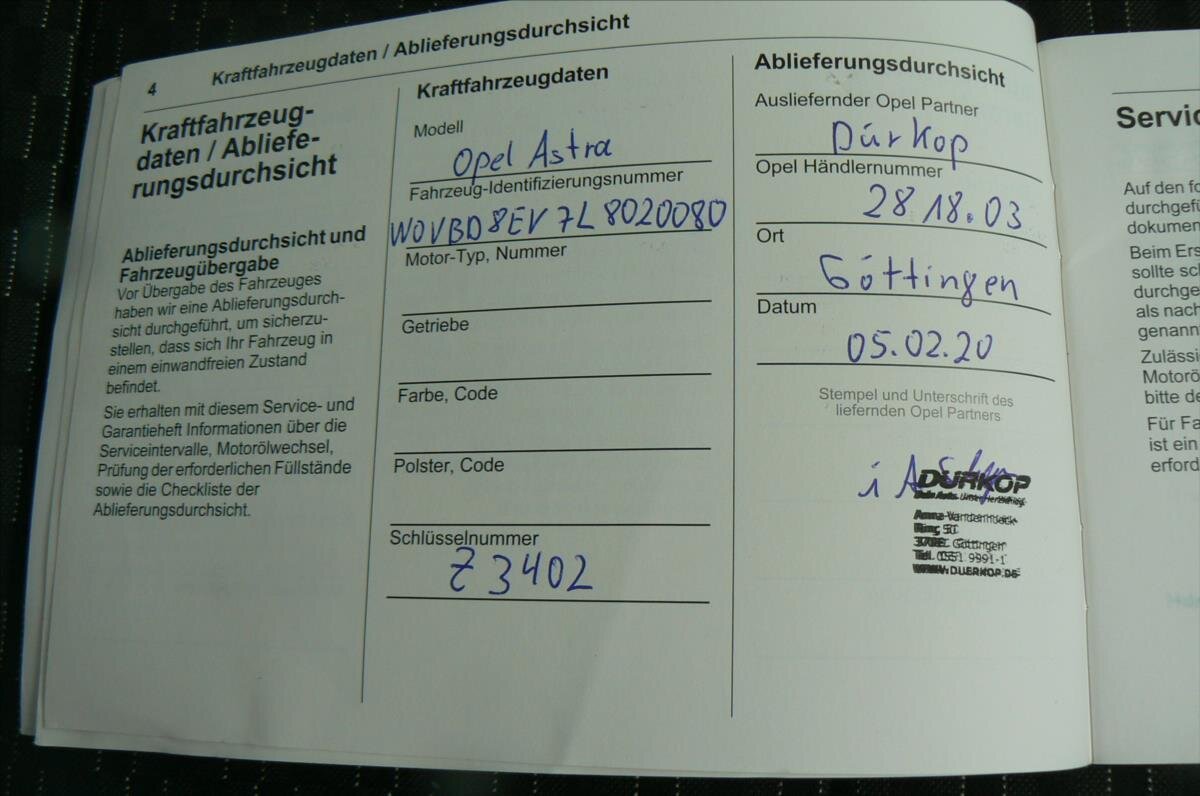 4
Kraftfahrzeugdaten / Ablieferungsdurchsicht
Kraftfahrzeug-
daten / Abliefe-
rungsdurchsicht
Ablieferungsdurchsicht und
Fahrzeugübergabe
Vor Übergabe des Fahrzeuges
haben wir eine Ablieferungsdurch-
sicht durchgeführt, um sicherzu-
stellen, dass sich Ihr Fahrzeug in
einem einwandfreien Zustand
befindet.
Sie erhalten mit diesem Service- und
Garantieheft Informationen über die
Serviceintervalle, Motorölwechsel,
Prüfung der erforderlichen Füllstände
sowie die Checkliste der
Ablieferungsdurchsicht.
Kraftfahrzeugdaten
Modell
Opel Astra
Fahrzeug-Identifizierungsnummer
W0VBD8EV7L8020080
Motor-Typ, Nummer
Getriebe
Farbe, Code
Polster, Code
Schlüsselnummer
Z3402
Ablieferungsdurchsicht
Ausliefernder Opel Partner
Dürkop
Opel Händlernummer
28 18.03
Ort
Göttingen
Datum
05.02.20
Stempel und Unterschrift des
liefernden Opel Partners
DÜRKOP
Ring 50
Göttingen
Tel. 0551 9991-1
WWW.DUERKOP.DE
Servic
Auf den fo
durchgefü
dokumen
Beim Ers
sollte sch
durchge
als nach
genann
Zulässi
Motorö
bitte de
Für Fa
ist ein
erford